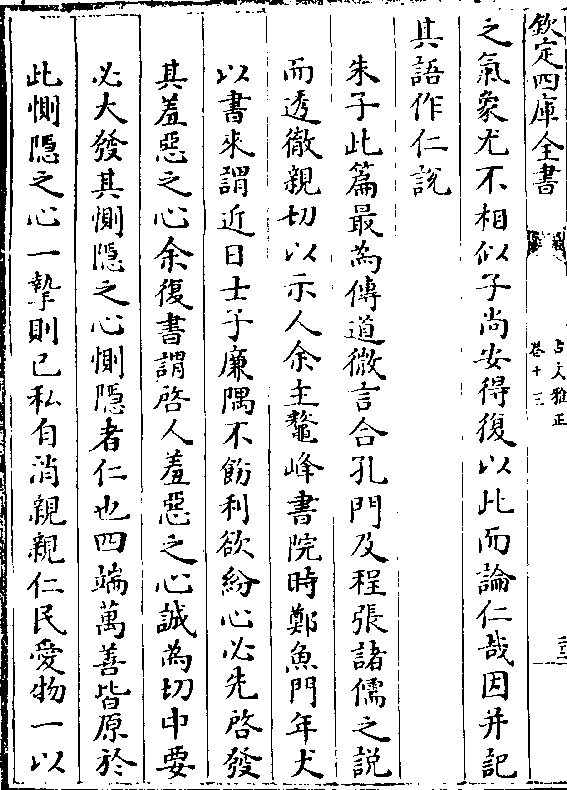 欽定四庫全書
古文雅正
卷十三
之氣象尤不相似子尚安得復以此而論仁哉因并記
其語作仁説
朱子此篇最為傳道微言合孔門及程張諸儒之説
而透徹親切以示人余主鼇峰書院時鄭魚門年丈
以書來謂近日士子廉隅不飭利欲紛心必先啓發
其羞惡之心余復書謂啓人羞惡之心誠為切中要
必大發其惻隠之心惻隠者仁也四端萬善皆原於
此惻隠之心一摯則已私自消親親仁民愛物一以